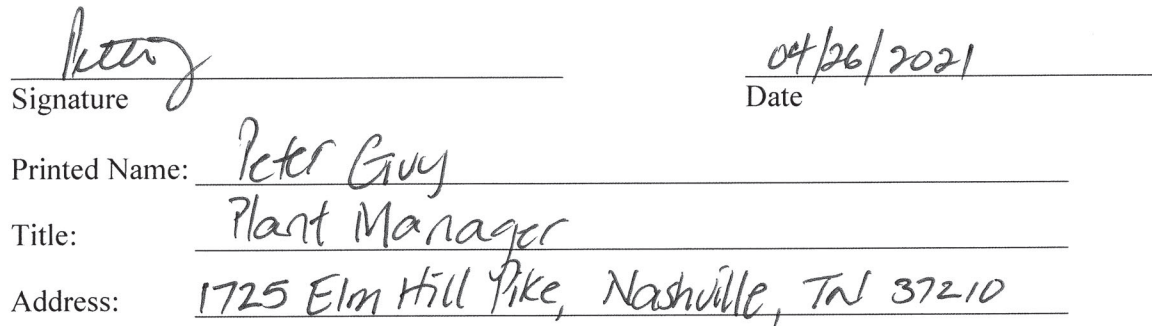 04/26/2021
Signature Date
Printed Name: Peter Guy
Title: Plant Manager
Address: 1725 Elm Hill Pike, Nashville, TN 37210